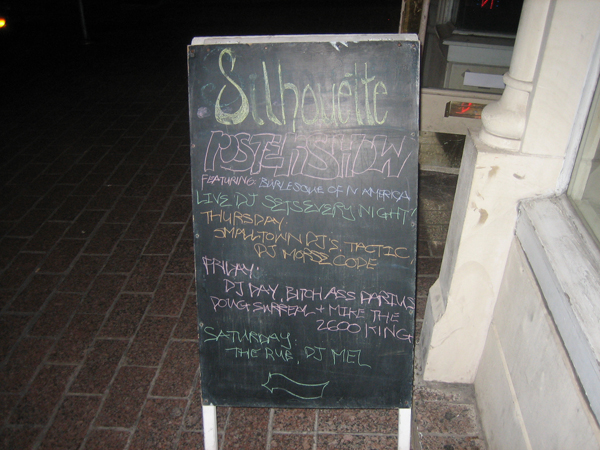 Silhouette
POSTER SHOW
FEATURING: BURLESQUE OF N AMERICA
LIVE DJ SETS EVERY NIGHT!
THURSDAY
SMALLTOWN DJ'S, TACTIC,
DJ MORSE CODE
FRIDAY:
DJ DAY, BITCH ASS DARIUS,
DOUG SURREAL + MIKE THE
2600 KING
SATURDAY:
THE RUB, DJ MEL